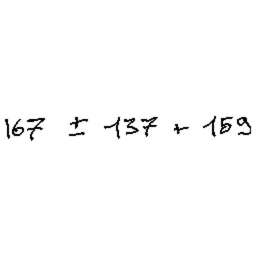 167 ± 137 + 159